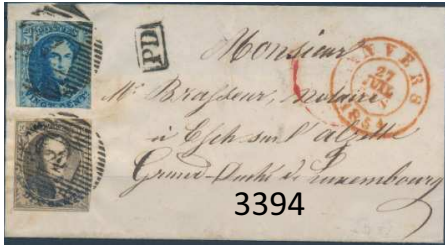 PD
Monsieur
ANVERS
27
JUIL
Mr Brasseur, notaire
à Esch sur l'alzette
Grand-Duché de Luxembourg
3394